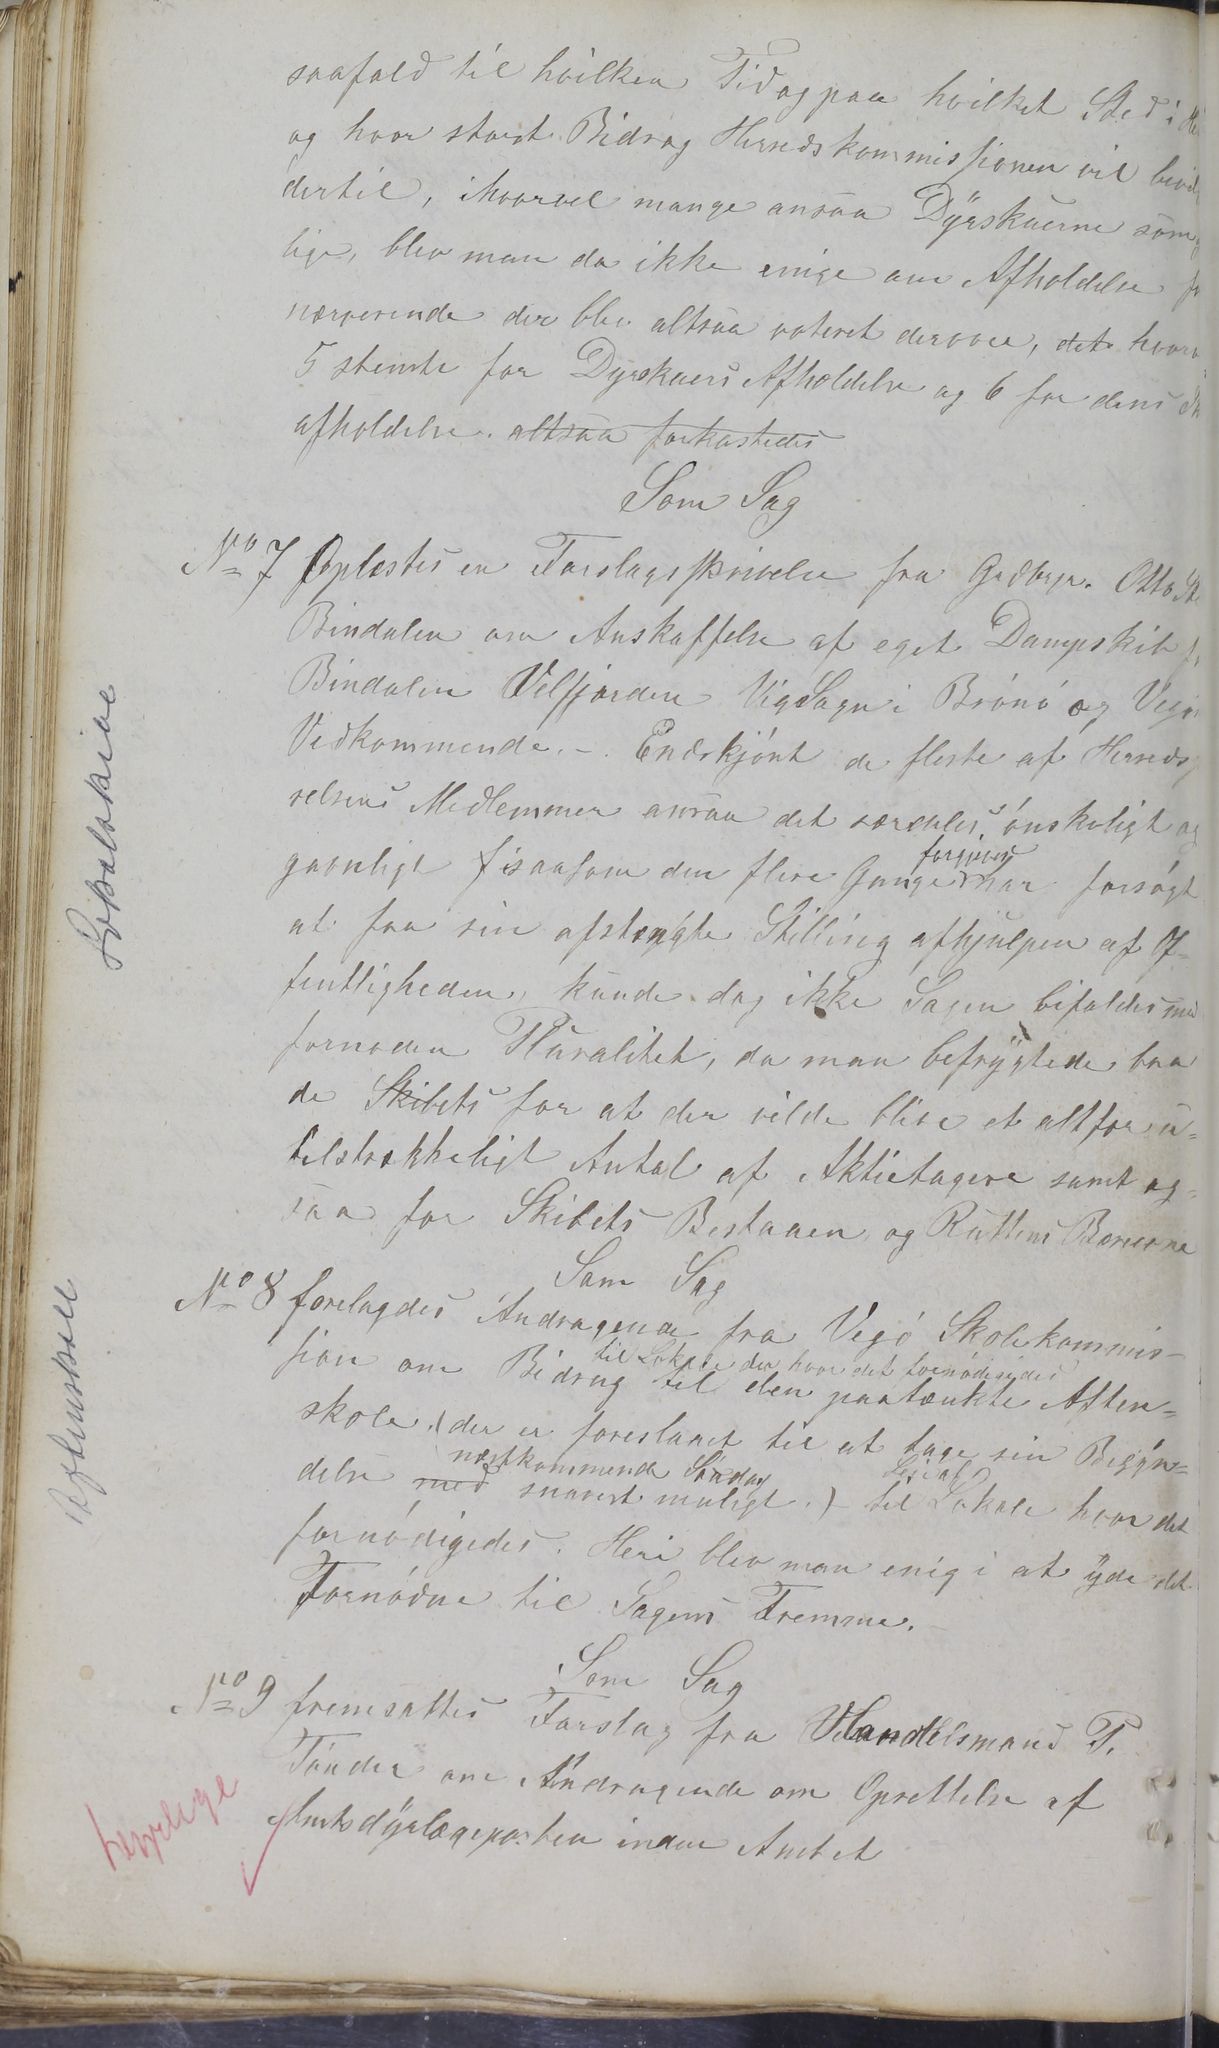 saafald til hvilken Tid og paa hvilket Sted i
og hvor stort Bidrag Herredskommissionen vil
dertil, ihvorvel mange ansaa Dyrskuerne
lige, blev man da ikke enige om Afholdelse
nærverende der blev altsaa voteret derover, det
5 stemte for Dyrskuers Afholdelse og 6 for dens
afholdelse. altsaa forkastedes
Som Sag
No 7 Oplæstes en Forslagsskrivelse fra Grdbrgr. Otto
Bindalen om Anskaffelse af eget Dampskib
Bindalen Velfjorden Vigsogn i Brönö og
Vedkommende. - Endskjönt de fleste af
relsens Medlemmer ansaa det særdeles önskeligt og
gavnligt isaasom den flere Gange forgjeves har forsögt
at faa sin afstængte Stilling afhjulpen af Of-
fentligheden, kunde dog ikke Sagen bifaldes med
fornøden Pluralitet, da man befrygtede baa
de Skibets for at der vilde blive et altfor u-
tilstrækkeligt Antal af Aktietagere samt og-
saa for Skibets Bestaaen og Ruttens Bæreevne
Som Sag
No 8 forelagdes Andragende fra Vegö Skolekommis-
sion om Bidrag til Lokale der hvor det fornödigedes til den paatænkte Aften-
skole. (der er foreslaaet til at tage sin Begyn-
delse med næstkommende Söndag snarest muligt.) til Lokale hvor det
fornödigedes. Heri blev man enig i at yde det
Fornödne til Sagens Fremme. -
Som Sag
No 9 fremsattes Forslag fra Handelsmand P.
Tönder om Andragende om Oprettelse af
Amtsdyrlægeposten inden Amtet
Lokalskive
Aftenskole